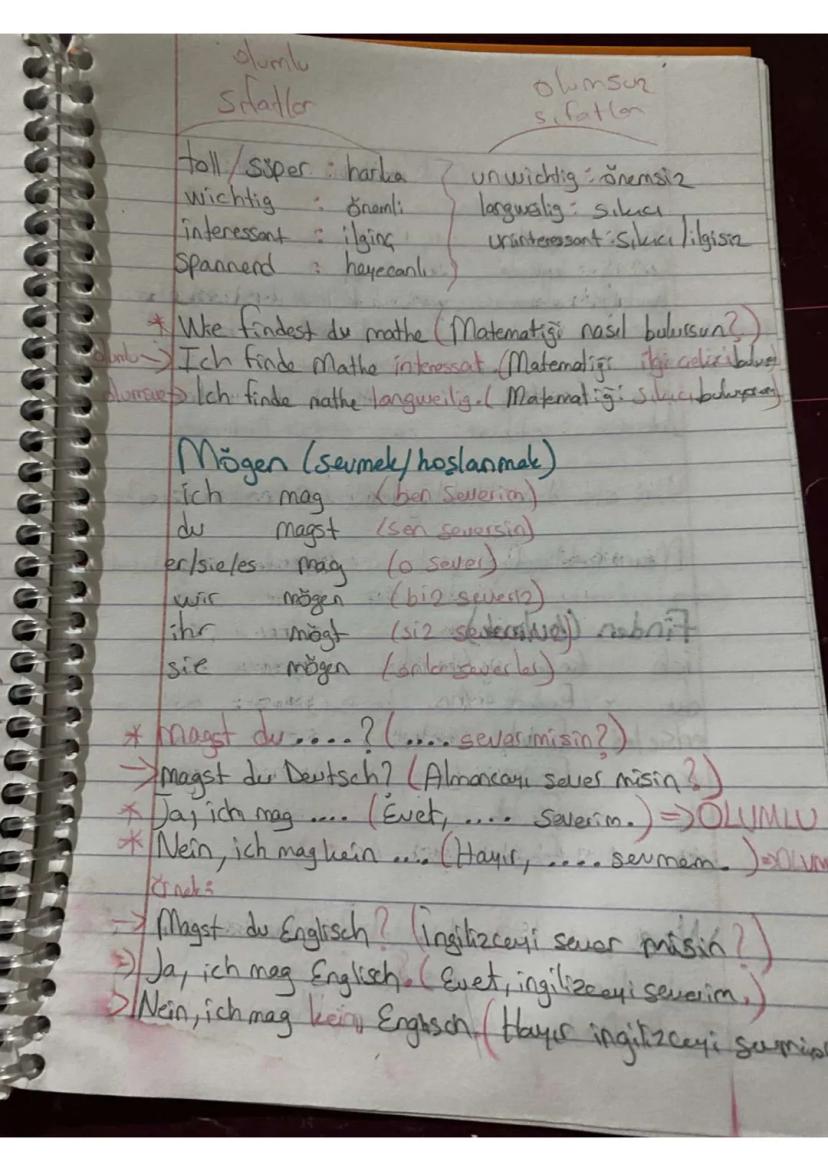 olumlu sıfatlar
olumsuz sıfatlar
toll/süper : harika
wichtig : önemli
interessant : ilginç
spannend : heyecanlı
unwichtig : önemsiz
langwelig : sıkıcı
uninteressant : sıkıcı/ilgisiz
* Wie findest du mathe (Matematiği nasıl bulursun?)
olumlu → Ich finde Mathe interessat (Matematiği ilgi çekici
olumsuz → Ich finde mathe langweilig. (Matematiği sıkıcı buluyorum)
Mögen (sevmek/hoslanmak)
ich mag (ben severim)
du magst (sen seversin)
er/sie/es mag (o sever)
wir mögen (biz severiz)
ihr mögt (siz
sie mögen (onlar severler)
* Magst du ....? (.... sever misin?)
→ magst du Deutsch? (Almancayı sever misin?)
* Ja, ich mag .... (Evet, .... severim.) => OLUMLU
* Nein, ich mag kein .... (Hayır, .... sevmem.) =>
Örnek:
→ Magst du Englisch? (İngilizceyi sever misin?)
⇒ Ja, ich mag Englisch. (Evet, ingilizceyi severim.)
> Nein, ich mag kein Englisch (Hayır ingilizceyi